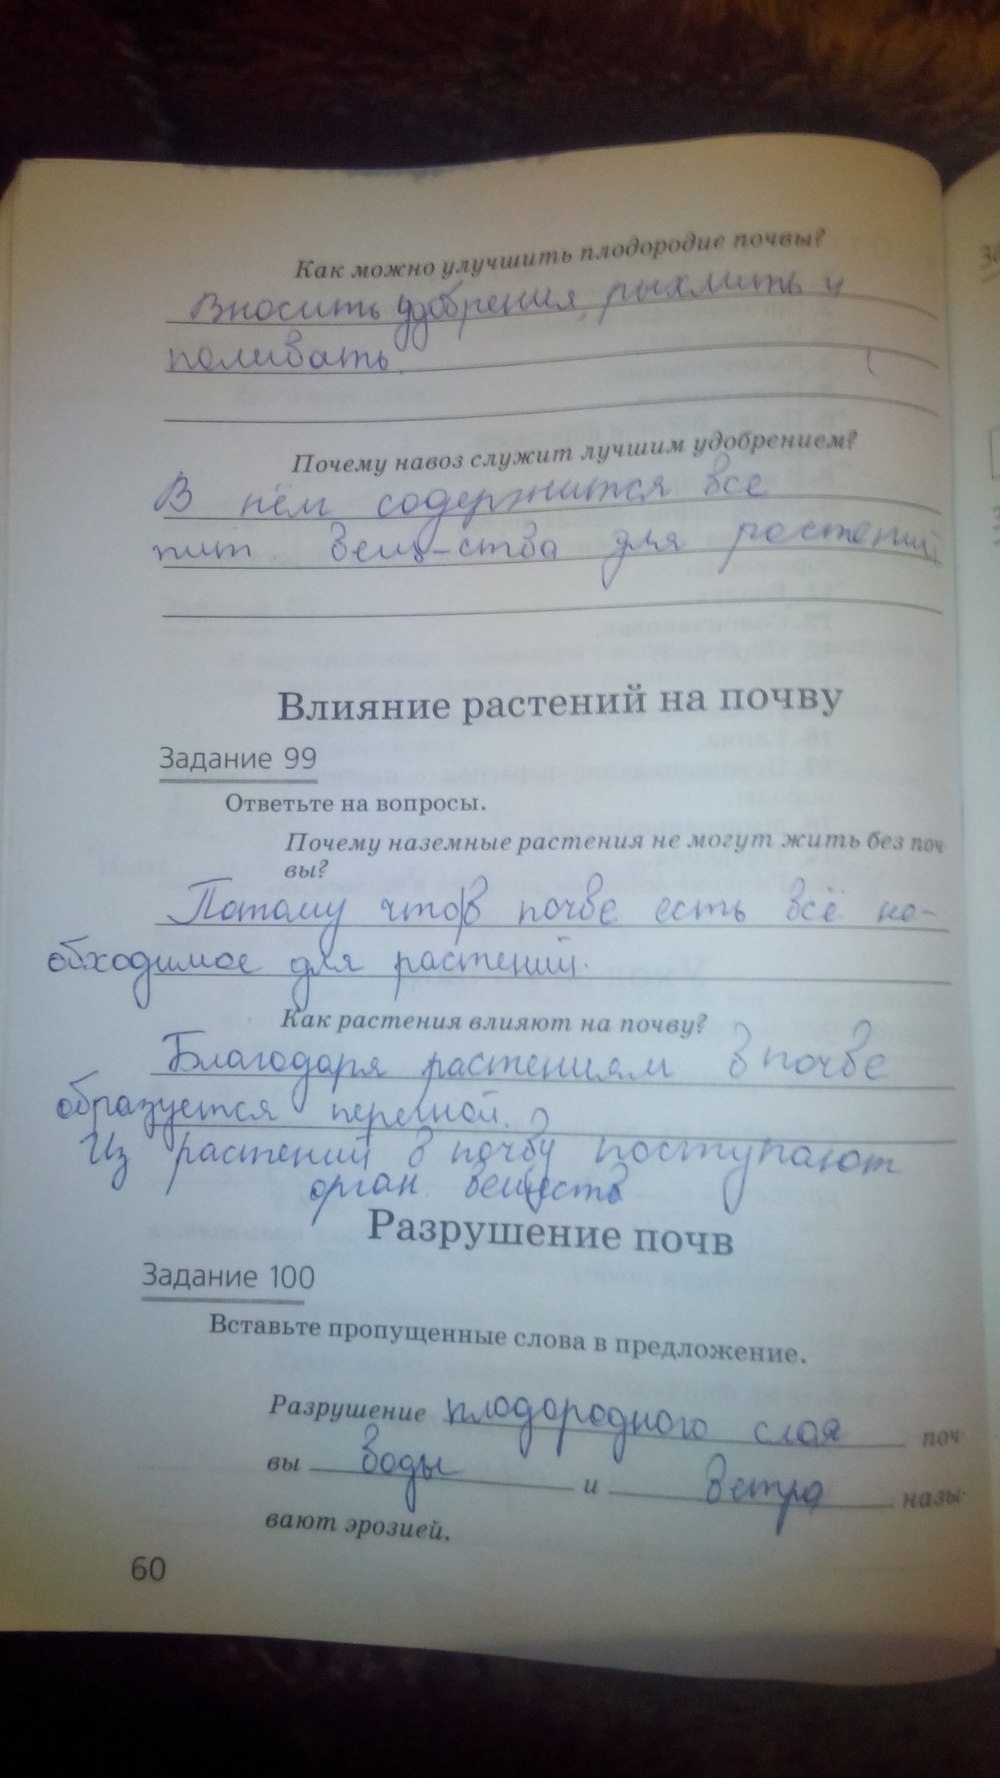 Как можно улучшить плодородие почвы?
Вносить удобрения, рыхлить и
поливать.
Почему навоз служит лучшим удобрением?
В нём содержится все
пит. вещ-ства для растений
Влияние растений на почву
Задание 99
Ответьте на вопросы.
Почему наземные растения не могут жить без поч-
вы?
Потому что в почве есть всё не-
обходимое для растений.
Как растения влияют на почву?
Благодаря растениям в почве
образуется перегной.
Из растений в почву поступают
орган. веществ
Разрушение почв
Задание 100
Вставьте пропущенные слова в предложение.
Разрушение плодородного слоя поч-
вы воды и ветра назы-
вают эрозией.
60